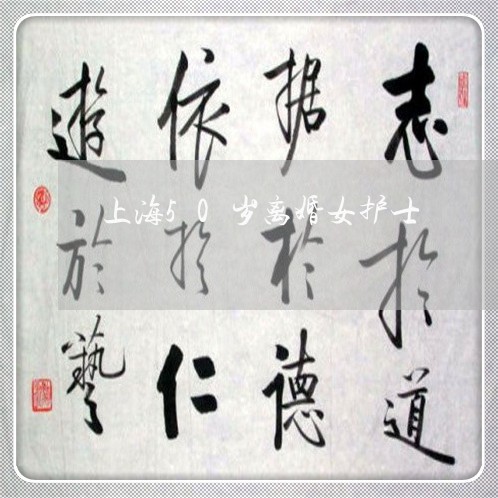 志於道
据於德
依於仁
遊於藝
上海50岁离婚女护士